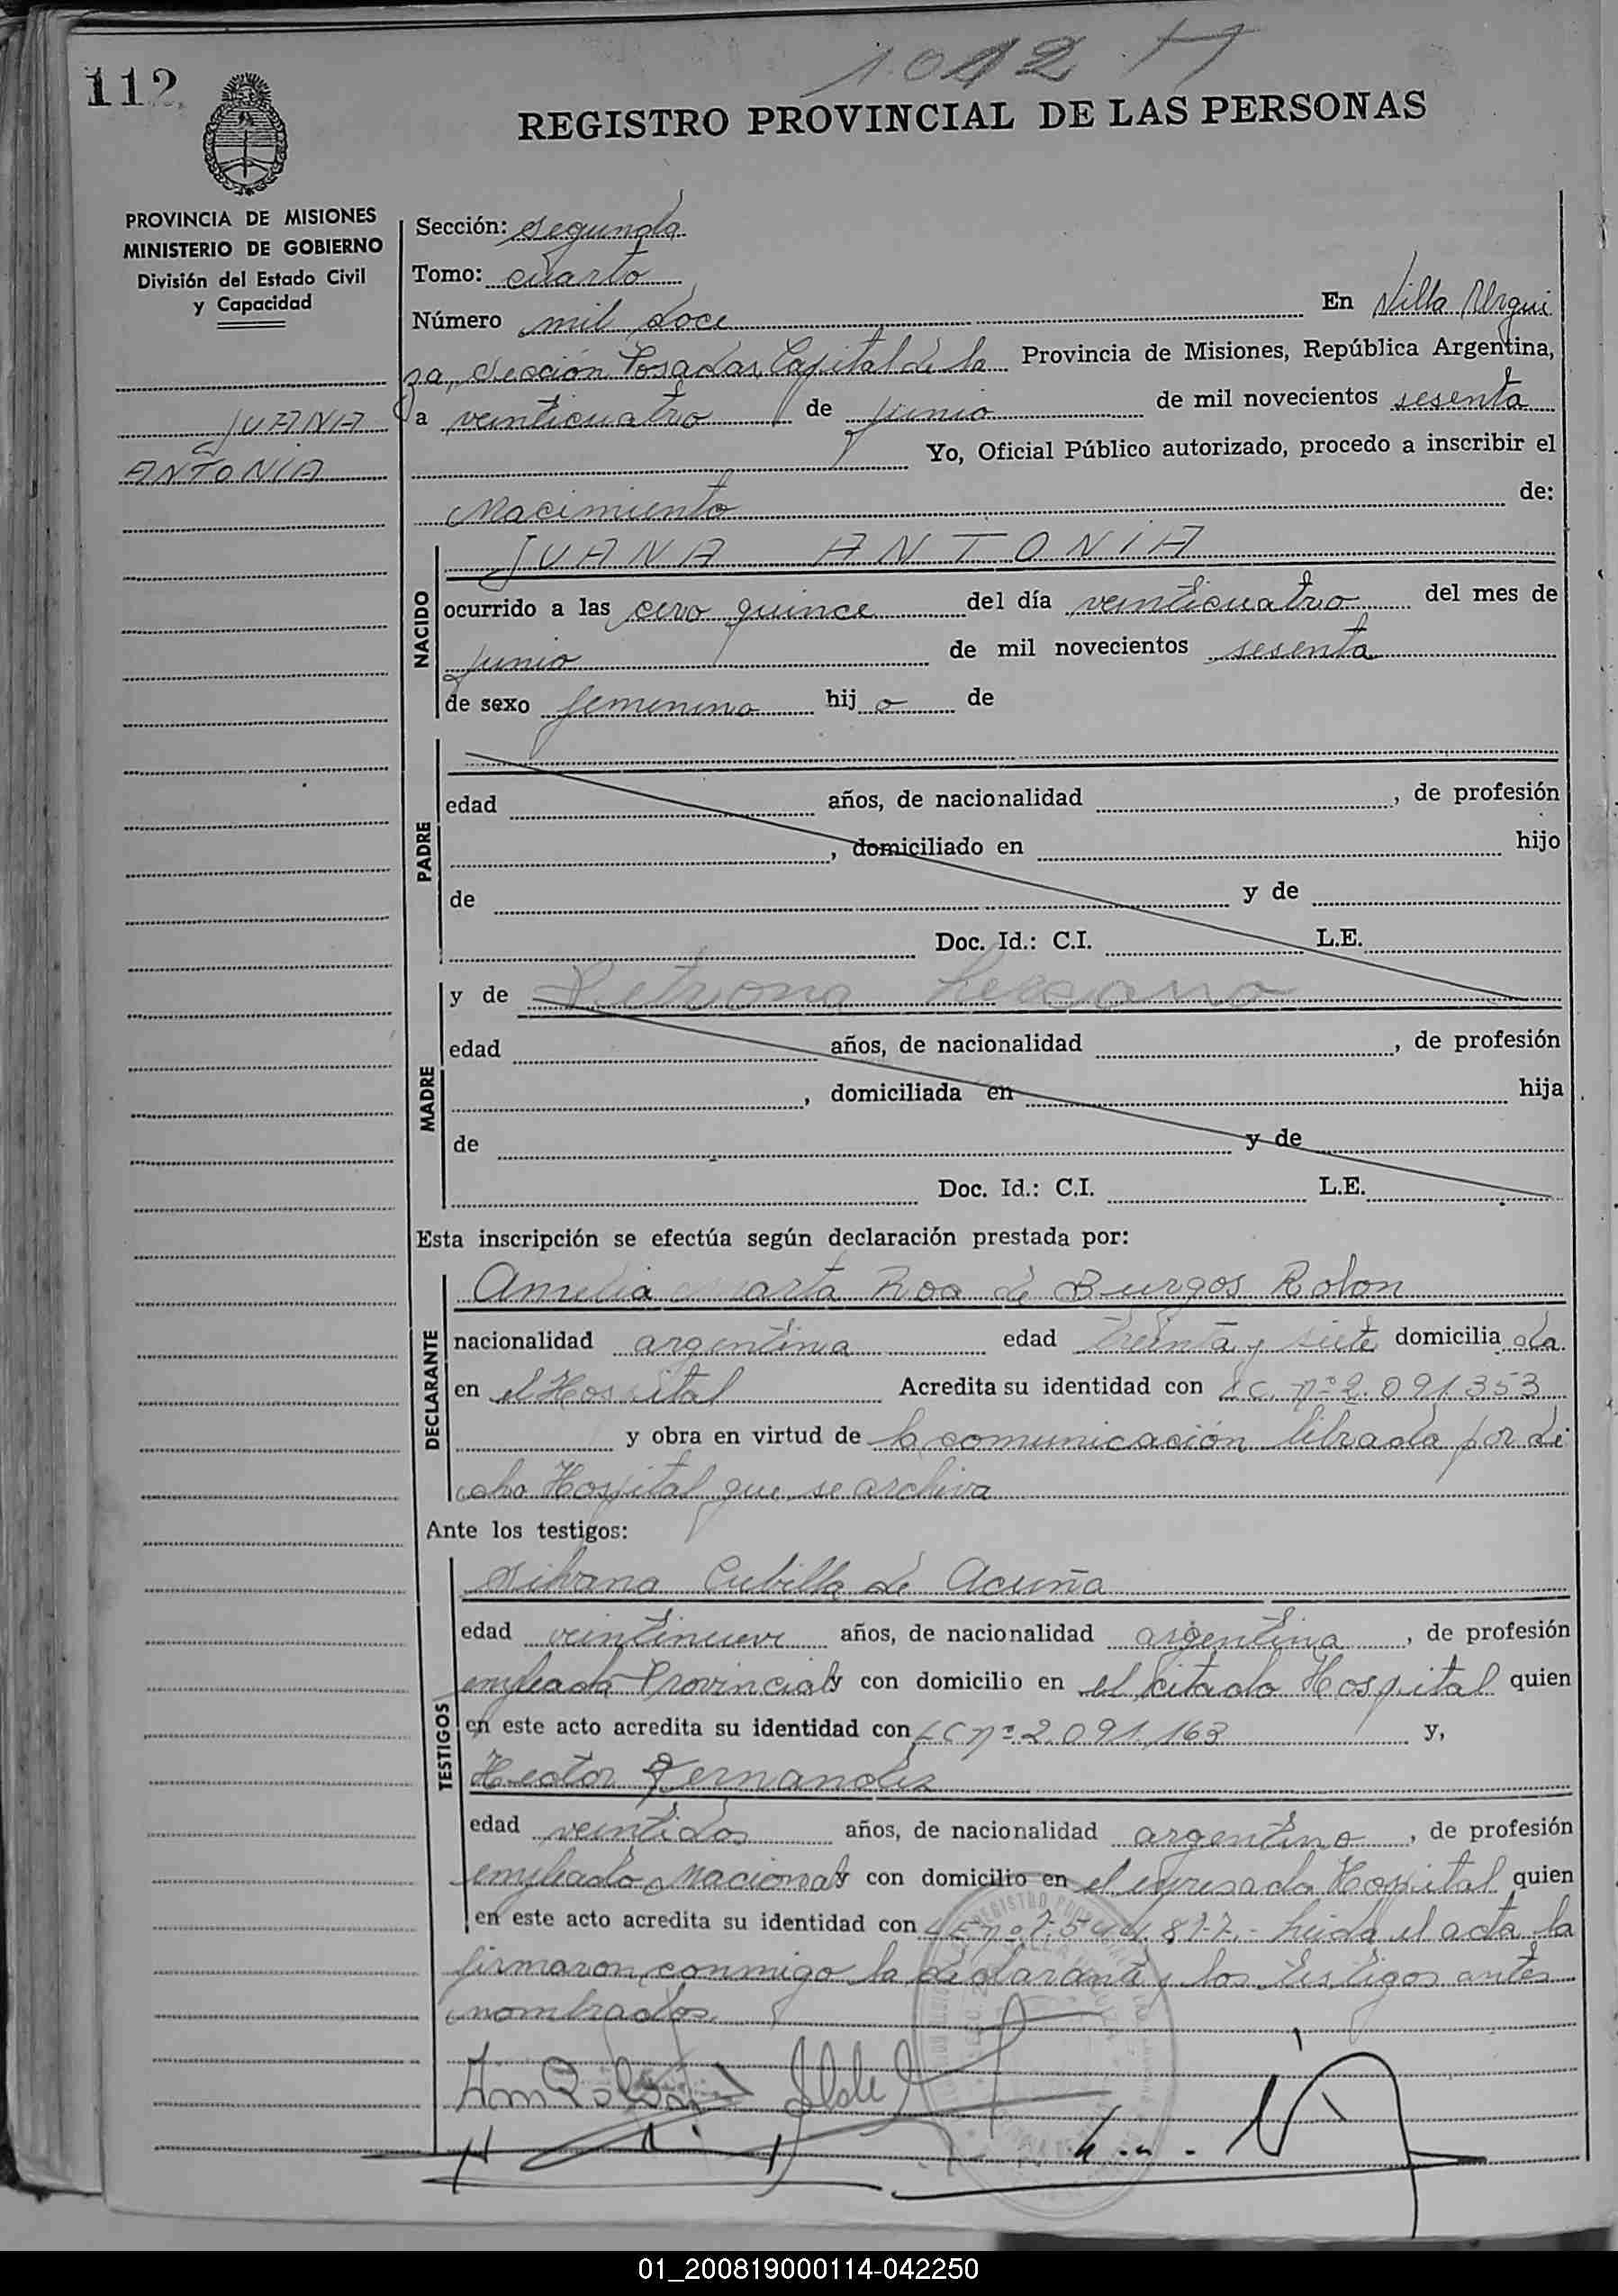 112
REGISTRO PROVINCIAL DE LAS PERSONAS
PROVINCIA DE MISIONES
MINISTERIO DE GOBIERNO
División del Estado Civil
y Capacidad
JUANA
ANTONIA
Sección: segunda
Tomo: cuarto
Número mil doce En Villa Urqui
za, Sección Posadas, Capital de la Provincia de Misiones, República Argentina,
a veinticuatro de junio de mil novecientos sesenta
Yo, Oficial Público autorizado, procedo a inscribir el
Nacimiento de:
NACIDO
JUANA ANTONIA
ocurrido a las cero quince del día veinticuatro del mes de
junio de mil novecientos sesenta
de sexo femenino hij a de
PADRE
edad años, de nacionalidad , de profesión
, domiciliado en hijo
de y de
Doc. Id.: C.I. L.E.
MADRE
y de Petrona
edad años, de nacionalidad , de profesión
, domiciliada en hija
de y de
Doc. Id.: C.I. L.E.
Esta inscripción se efectúa según declaración prestada por:
DECLARANTE
Amelia Marta Roa de Burgos Rolon
nacionalidad argentina edad treinta y siete domicilia da
en el Hospital Acredita su identidad con LC. nº 2.091.353
y obra en virtud de la comunicación librada por di
cho Hospital que se archiva
Ante los testigos:
TESTIGOS
Silvana Cubilla de Acuña
edad veintinueve años, de nacionalidad argentina , de profesión
empleada Provincial y con domicilio en el citado Hospital quien
en este acto acredita su identidad con LC nº 2.091.163 y,
Hector Fernandez
edad veintidos años, de nacionalidad argentino , de profesión
empleado Nacional y con domicilio en el expresado Hospital quien
en este acto acredita su identidad con LE nº 7.544.877.- Leida el acta la
firmaron conmigo la declarante y los testigos antes
nombrados.
01_200819000114-042250